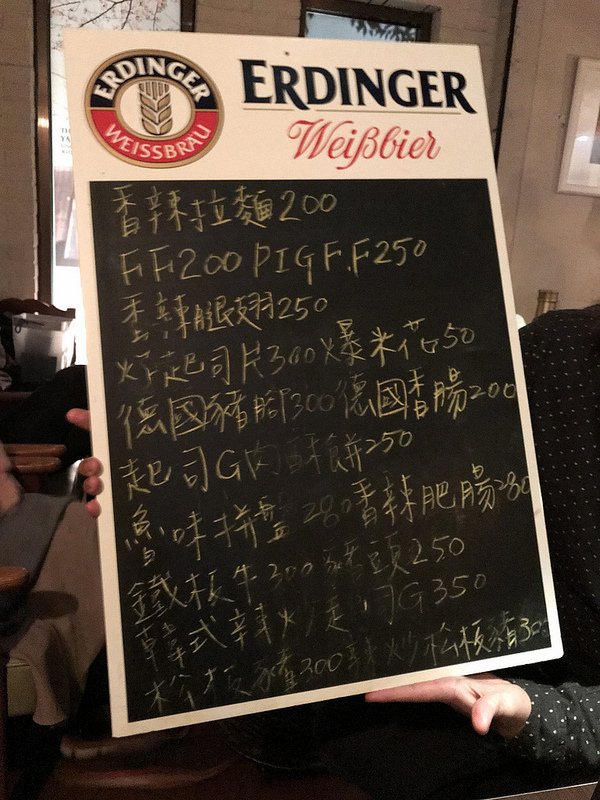 ERDINGER
WEISSBRÄU
ERDINGER
Weißbier
香辣拉麵200
F.F200 PIG F.F250
香辣腿翅250
炸起司片300爆米花50
德國豬腳300德國香腸200
起司G肉酥餅250
魯味拼盤280香辣肥腸280
鐵板牛300 豬頭250
韓式辣炒起司G350
松板豬300辣炒松板豬30